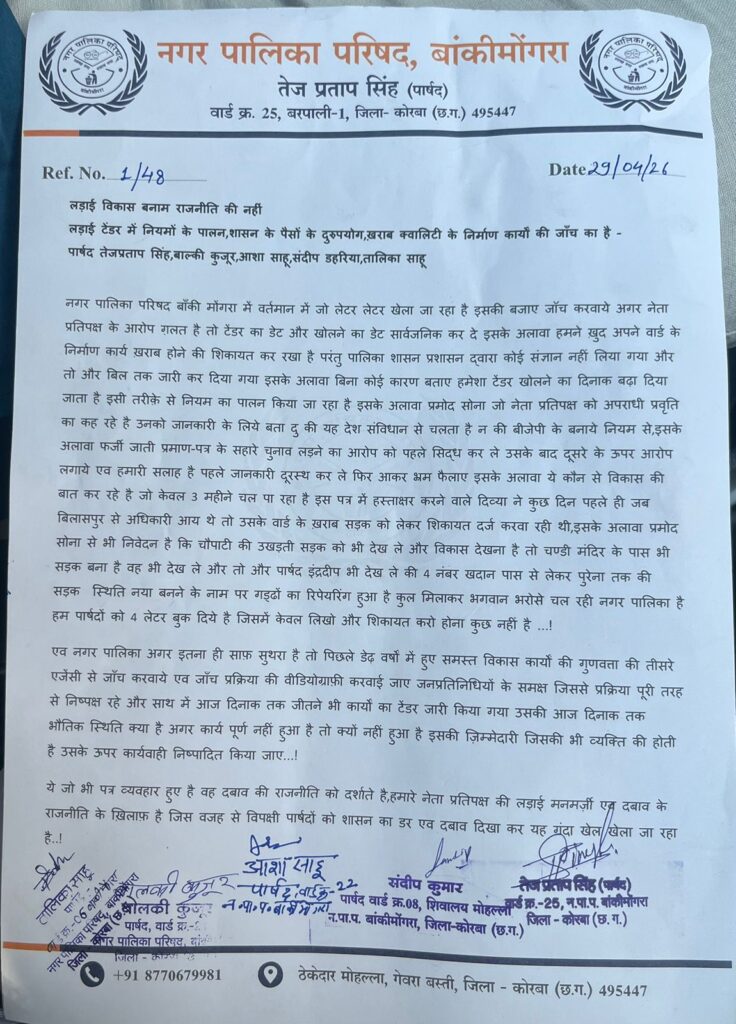 नगर पालिका परिषद, बांकीमोंगरा
तेज प्रताप सिंह (पार्षद)
वार्ड क्र. 25, बरपाली-1, जिला- कोरबा (छ.ग.) 495447
Ref. No. 1/48
Date 29/04/26
लड़ाई विकास बनाम राजनीति की नहीं
लड़ाई टेंडर में नियमों के पालन,शासन के पैसों के दुरुपयोग,ख़राब क्वालिटी के निर्माण कार्यो की जाँच का है -
पार्षद तेजप्रताप सिंह,बाल्की कुजूर,आशा साहू,संदीप डहरिया,तालिका साहू
नगर पालिका परिषद बाँकी मोंगरा में वर्तमान में जो लेटर लेटर खेला जा रहा है इसकी बजाए जाँच करवाये अगर नेता
प्रतिपक्ष के आरोप ग़लत है तो टेंडर का डेट और खोलने का डेट सार्वजनिक कर दे इसके अलावा हमने ख़ुद अपने वार्ड के
निर्माण कार्य ख़राब होने की शिकायत कर रखा है परंतु पालिका शासन प्रशासन द्वारा कोई संज्ञान नहीं लिया गया और
तो और बिल तक जारी कर दिया गया इसके अलावा बिना कोई कारण बताए हमेशा टेंडर खोलने का दिनाक बढ़ा दिया
जाता है इसी तरीक़े से नियम का पालन किया जा रहा है इसके अलावा प्रमोद सोना जो नेता प्रतिपक्ष को अपराधी प्रवृति
का कह रहे है उनको जानकारी के लिये बता दु की यह देश संविधान से चलता है न की बीजेपी के बनाये नियम से,इसके
अलावा फर्जी जाती प्रमाण-पत्र के सहारे चुनाव लड़ने का आरोप को पहले सिद्ध कर ले उसके बाद दूसरे के ऊपर आरोप
लगाये एव हमारी सलाह है पहले जानकारी दूरस्थ कर ले फिर आकर भ्रम फैलाए इसके अलावा ये कौन से विकास की
बात कर रहे है जो केवल 3 महीने चल पा रहा है इस पत्र में हस्ताक्षर करने वाले दिव्या ने कुछ दिन पहले ही जब
बिलासपुर से अधिकारी आय थे तो उसके वार्ड के ख़राब सड़क को लेकर शिकायत दर्ज करवा रही थी,इसके अलावा प्रमोद
सोना से भी निवेदन है कि चौपाटी की उखड़ती सड़क को भी देख ले और विकास देखना है तो चण्डी मंदिर के पास भी
सड़क बना है वह भी देख ले और तो और पार्षद इंद्रदीप भी देख ले की 4 नंबर खदान पास से लेकर पुरेना तक की
सड़क स्थिति नया बनने के नाम पर गड्ढों का रिपेयरिंग हुआ है कुल मिलाकर भगवान भरोसे चल रही नगर पालिका है
हम पार्षदों को 4 लेटर बुक दिये है जिसमें केवल लिखो और शिकायत करो होना कुछ नहीं है ...!
एव नगर पालिका अगर इतना ही साफ़ सुथरा है तो पिछले डेढ़ वर्षो में हुए समस्त विकास कार्यो की गुणवत्ता की तीसरे
एजेंसी से जाँच करवाये एव जाँच प्रक्रिया की वीडियोग्राफ़ी करवाई जाए जनप्रतिनिधियों के समक्ष जिससे प्रक्रिया पूरी तरह
से निष्पक्ष रहे और साथ में आज दिनाक तक जीतने भी कार्यो का टेंडर जारी किया गया उसकी आज दिनाक तक
भौतिक स्थिति क्या है अगर कार्य पूर्ण नहीं हुआ है तो क्यों नहीं हुआ है इसकी ज़िम्मेदारी जिसकी भी व्यक्ति की होती
है उसके ऊपर कार्यवाही निष्पादित किया जाए...!
ये जो भी पत्र व्यवहार हुए है वह दबाव की राजनीति को दर्शाते है,हमारे नेता प्रतिपक्ष की लड़ाई मनमर्ज़ी एव दबाव के
राजनीति के ख़िलाफ़ है जिस वजह से विपक्षी पार्षदों को शासन का डर एव दबाव दिखा कर यह गंदा खेल खेला जा रहा
है..!
तालिका साहू
नगर पालिका परिषद, बांकीमोंगरा
जिला- कोरबा (छ.ग.)
बालकी कुजूर
पार्षद, वार्ड क्र.-
नगर पालिका परिषद,
आशा साहू
पार्षद वार्ड क्र-22
संदीप कुमार
पार्षद वार्ड क्र.08, शिवालय मोहल्ला
न.पा.प. बांकीमोंगरा, जिला-कोरबा (छ.ग.)
तेज प्रताप सिंह (पार्षद)
वार्ड क्र.-25, न.पा.प. बांकीमोंगरा
जिला - कोरबा (छ. ग.)
+91 8770679981
ठेकेदार मोहल्ला, गेवरा बस्ती, जिला - कोरबा (छ.ग.) 495447